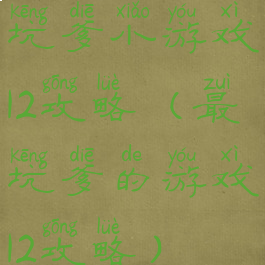 kēng diē xiǎo yóu xì
坑爹小游戏
gōng lüè zuì
12攻略（最
kēng diē de yóu xì
坑爹的游戏
gōng lüè
12攻略）